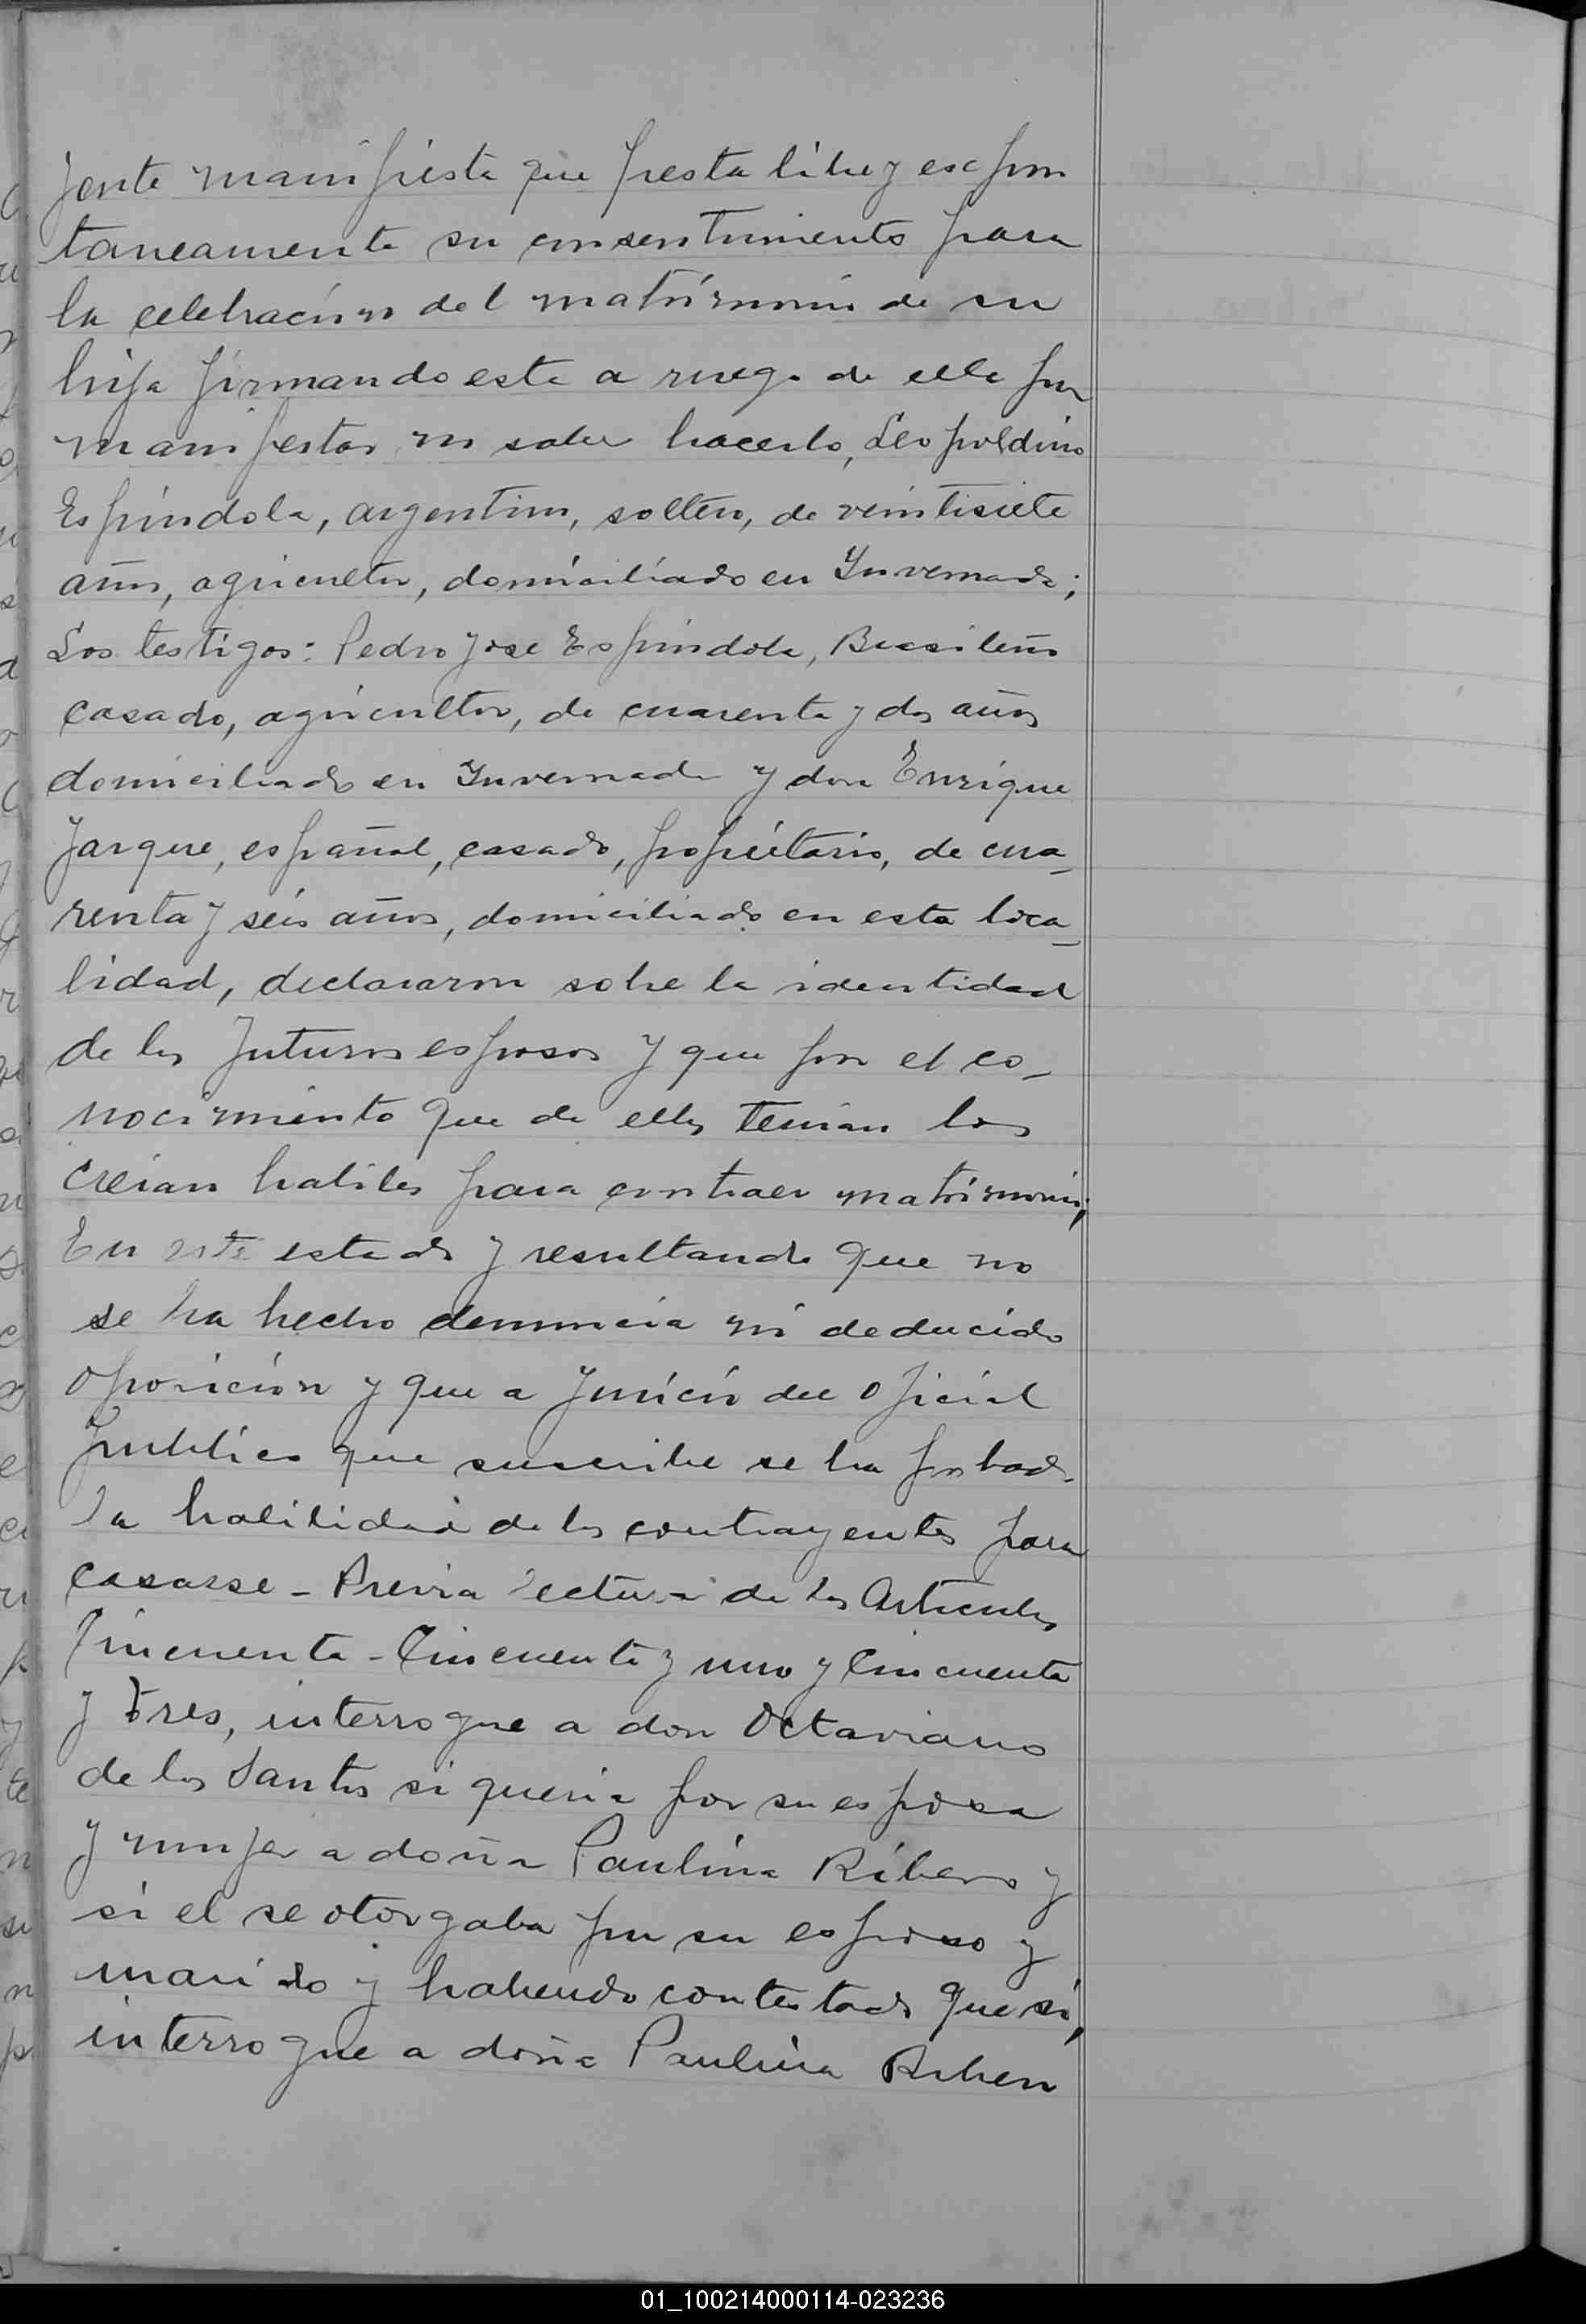 sente manifiesta que presta libre y espon
taneamente su consentimiento para
la celebración del matrimonio de su
hija firmando esta a ruego de ella por
manifestar no saber hacerlo, Leopoldino
Espíndola, argentino, soltero, de veintisiete
años, agricultor, domiciliado en Invernada;
Los testigos: Pedro Jose Espindola, Brasileño
casado, agricultor, de cuarenta y dos años
domiciliado en Invernada y don Enrique
Jarque, español, casado, propietario, de cua_
renta y seis años, domiciliado en esta loca_
lidad, declararon sobre la identidad
de los futuros esposos y que por el co_
nocimiento que de ellos tenian los
creian habiles para contraer matrimonio;
En este estado y resultando que no
se ha hecho denuncia ni deducido
oposición y que a juicio del oficial
publico que suscribe se ha probado
la habilidad de los contrayentes para
casarse - Previa lectura de los Articulos
Cincuenta - Cincuenta y uno y Cincuenta
y tres, interrogue a don Octaviano
de los Santos si queria por su esposa
y mujer a doña Paulina Ribero y
si el se otorgaba por su esposo y
marido y habiendo contestado que si,
interrogue a doña Paulina Ribero
01_100214000114-023236